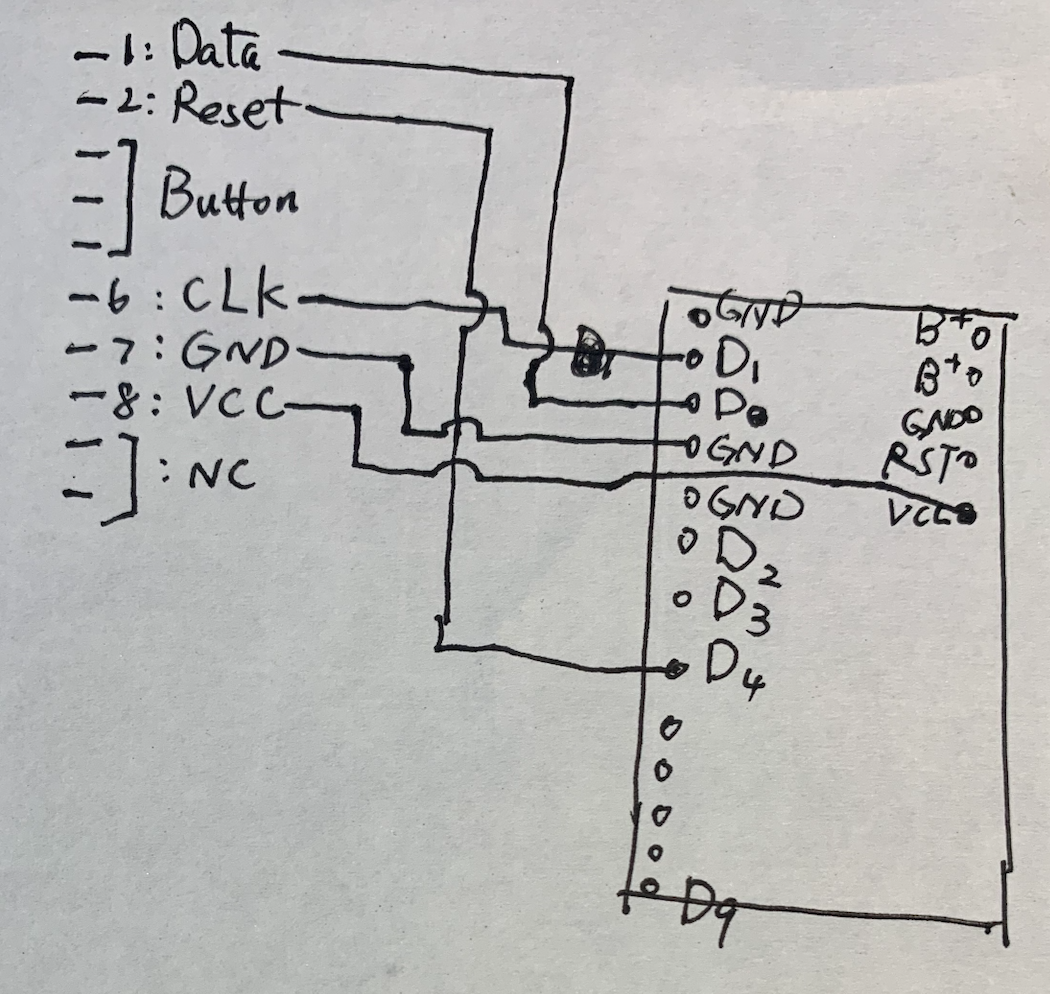 – 1: Data
– 2: Reset
Button
– 6: CLK
– 7: GND
– 8: VCC
: NC
GND
D1
D0
GND
GND
D2
D3
D4
D9
B+
B+
GND
RST
VCC